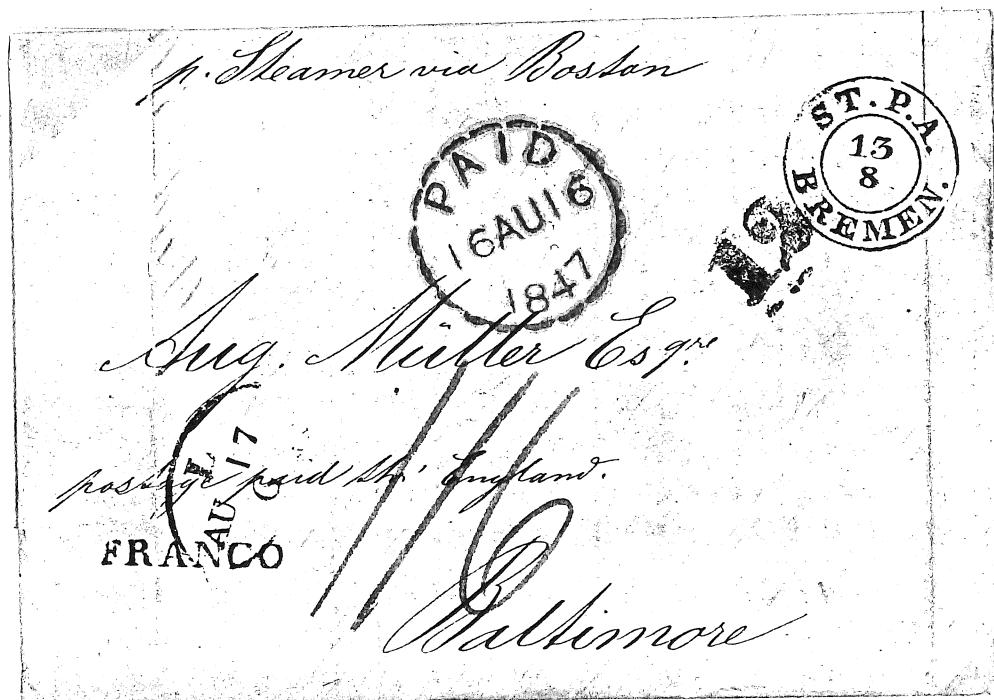 p. Steamer via Boston
ST. P. A.
13
8
BREMEN.
PAID
16AU16
1847
12
Aug. Müller Esqre.
postage paid thr. England.
L
AU 17
FRANCO
Baltimore